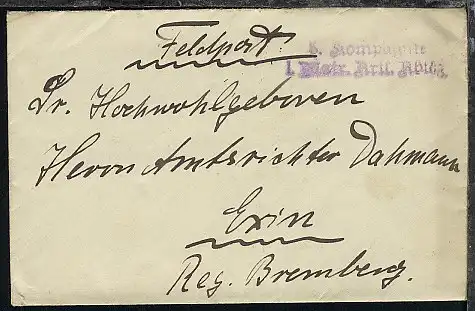 Feldpost.
6. Kompagnie
I. Matr. Artl. Abtlg.
Sr. Hochwohlgeboren
Herrn Amtsrichter Dahmann
Exin
Reg. Bromberg.